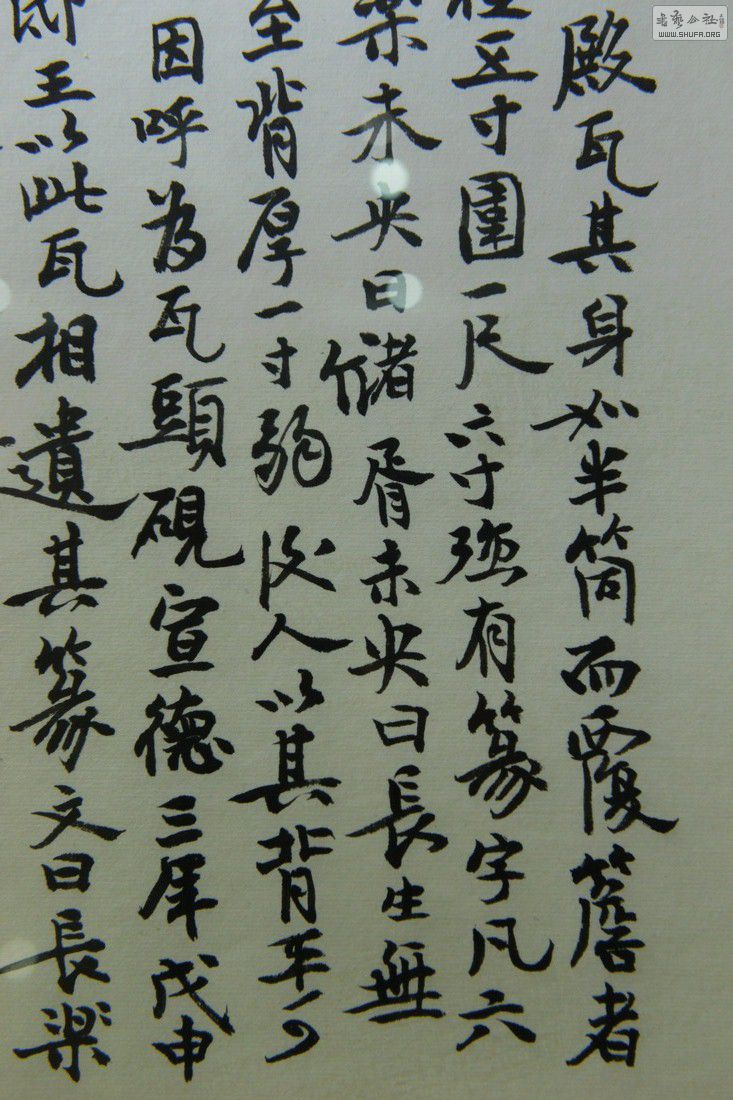 殿瓦其身如半筒而覆簷者
徑五寸圍一尺六寸強有篆字凡六
樂未央曰儲胥未央曰長生無
至背厚一寸弱後人以其背平可
因呼為瓦頭硯宣德三年戊申
邸王以此瓦相遺其篆文曰長樂
書藝公社
WWW.SHUFA.ORG